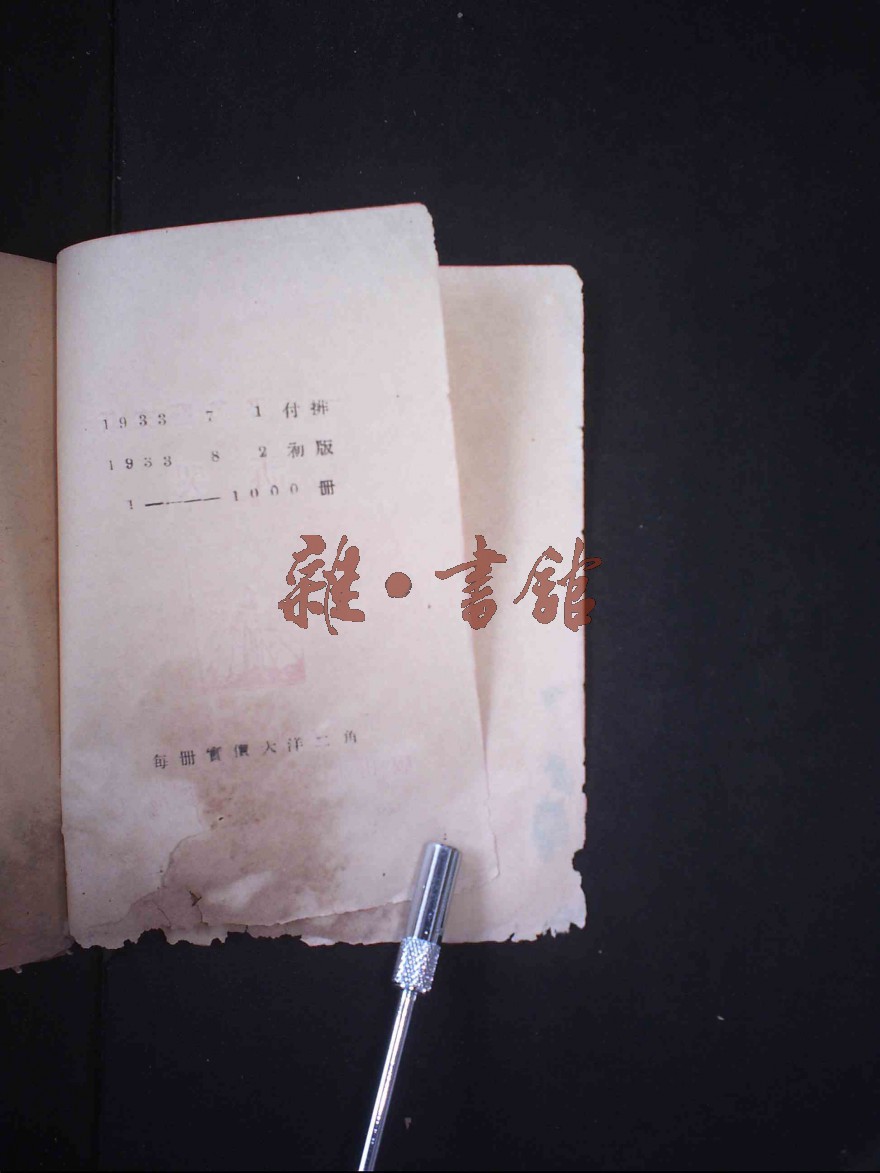 1933 7 1 付排
1933 8 2 初版
1———1000 冊
雜·書館
每冊實價大洋二角